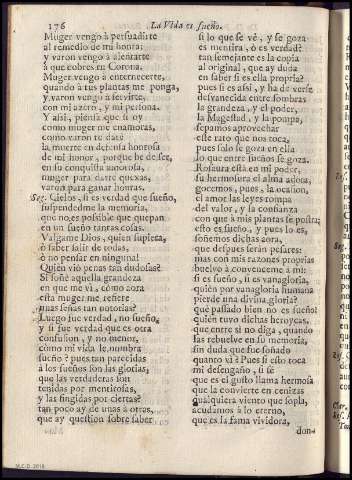 176
La Vida es sueño.
Muger vengo à persuadirte
al remedio de mi honra;
y varon vengo à alentarte
à que cobres tu Corona.
Muger vengo à enternecerte,
quando à tus plantas me ponga,
y varon vengo à servirte,
con mi azero, y mi persona.
Y assi, piensa que si oy
como muger me enamoras,
como varon te darè
la muerte en defensa honrosa
de mi honor, porque he de ser,
en su conquista amorosa,
muger para darte quexas,
varon para ganar honras.
Seg. Cielos, si es verdad que sueño,
suspendedme la memoria,
que no es possible que quepan
en un sueño tantas cosas.
Valgame Dios, quien supiera,
ò saber salir de todas,
ò no pensar en ninguna!
Quièn viò penas tan dudosas?
Si soñè aquella grandeza
en que me vì, còmo aora
esta muger me refiere
unas señas tan notorias?
Luego fue verdad, no sueño,
y si fue verdad que es otra
confusion, y no menor,
còmo mi vida le nombra
sueño? pues tan parecidas
à los sueños son las glorias,
que las verdaderas son
tenidas por mentirosas,
y las fingidas por ciertas?
tan poco ay de unas à otras,
que ay question sobre saber
si lo que se vè, y se goza
es mentira, ò es verdad?
tan semejante es la copia
al original, que ay duda
en saber si es ella propria?
pues si es assi, y ha de verse
desvanecida entre sombras
la grandeza, y el poder,
la Magestad, y la pompa,
sepamos aprovechar
este rato que nos toca,
pues solo se goza en ella
lo que entre sueños se goza.
Rosaura està en mi poder,
su hermosura el alma adora,
gocemos, pues, la ocasion,
el amor las leyes rompa
del valor, y la confianza
con que à mis plantas se postra;
esto es sueño, y pues lo es,
soñemos dichas aora,
que despues seràn pesares:
mas con mis razones proprias
buelvo à convencerme à mì:
si es sueño, si es vanagloria,
quièn por vanagloria humana
pierde una divina gloria?
què passado bien no es sueño?
quièn tuvo dichas heroycas,
que entre si no diga, quando
las rebuelve en su memoria,
sin duda que fue soñado
quanto vì? Pues si esto toca
mi desengaño, si sè
que es el gusto llama hermosa
que la convierte en cenizas
qualquiera viento que sopla,
acudamos à lo eterno,
que es la fama vividora,
don-
M.C.D. 2018